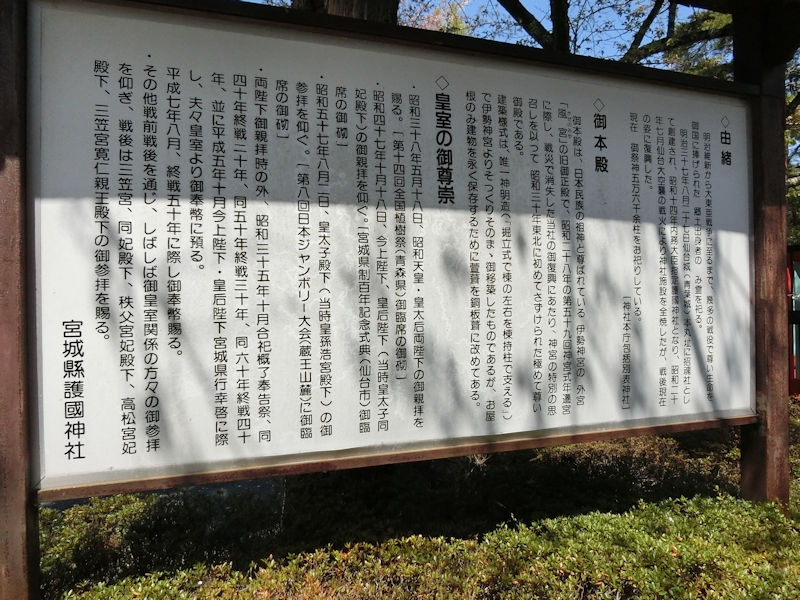 ◇由緒
明治維新から大東亜戦争に至るまで、幾多の戦役で尊い生命を
御国に捧げられた郷土出身者の み霊を祀る。
明治三十七年八月二十七日仙台城(青葉城)本丸址に招魂社とし
て創建され、昭和十四年内務大臣指定護國神社となり、昭和二十
年七月仙台大空襲の戦火により神社施設を全焼したが、戦後現在
の姿に復興した。
現在 御祭神五万六千余柱をお祀りしている。
[神社本庁包括別表神社]
◇御本殿
御本殿は、日本民族の祖神と尊ばれている 伊勢神宮の 外宮
「風宮」の旧御正殿で、昭和二十八年の第五十九回神宮式年遷宮
に際し、戦火で消失した当社の御復興にあたり、神宮の特別の思
召しを以って 昭和三十年東北に初めてさずけられた極めて尊い
御殿である。
建築様式は、唯一神明造(、掘立式で棟の左右を棟持柱で支える。)
で伊勢神宮よりそっくりそのまゝ御移築したものであるが、お屋
根のみ建物を永く保存するために萱葺を銅板葺に改めてある。
◇皇室の御尊崇
・昭和三十八年五月十八日、昭和天皇・皇太后両陛下の御親拝を
賜る。[第十四回全国植樹祭(青森県)御臨席の御砌]
・昭和四十七年十月十八日、今上陛下、皇后陛下(当時皇太子同
妃殿下)の御親拝を仰ぐ。[宮城県制百年記念式典(仙台市)御臨
席の御砌]
・昭和五十七年八月二日、皇太子殿下(当時皇孫浩宮殿下)の御
参拝を仰ぐ。[第八回日本ジャンボリー大会(蔵王山麓)に御臨
席の御砌]
・両陛下御親拝時の外、昭和三十五年十月合祀概了奉告祭、同
四十年終戦二十年、同五十年終戦三十年、同六十年終戦四十
年、並に平成五年十月今上陛下・皇后陛下宮城県行幸啓に際
し、夫々皇室より御奉幣に預る。
平成七年八月、終戦五十年に際し御奉幣賜る。
・その他戦前戦後を通じ、しばしば御皇室関係の方々の御参拝
を仰ぎ、戦後は三笠宮、同妃殿下、秩父宮妃殿下、高松宮妃
殿下、三笠宮寛仁親王殿下の御参拝を賜る。
宮城縣護國神社